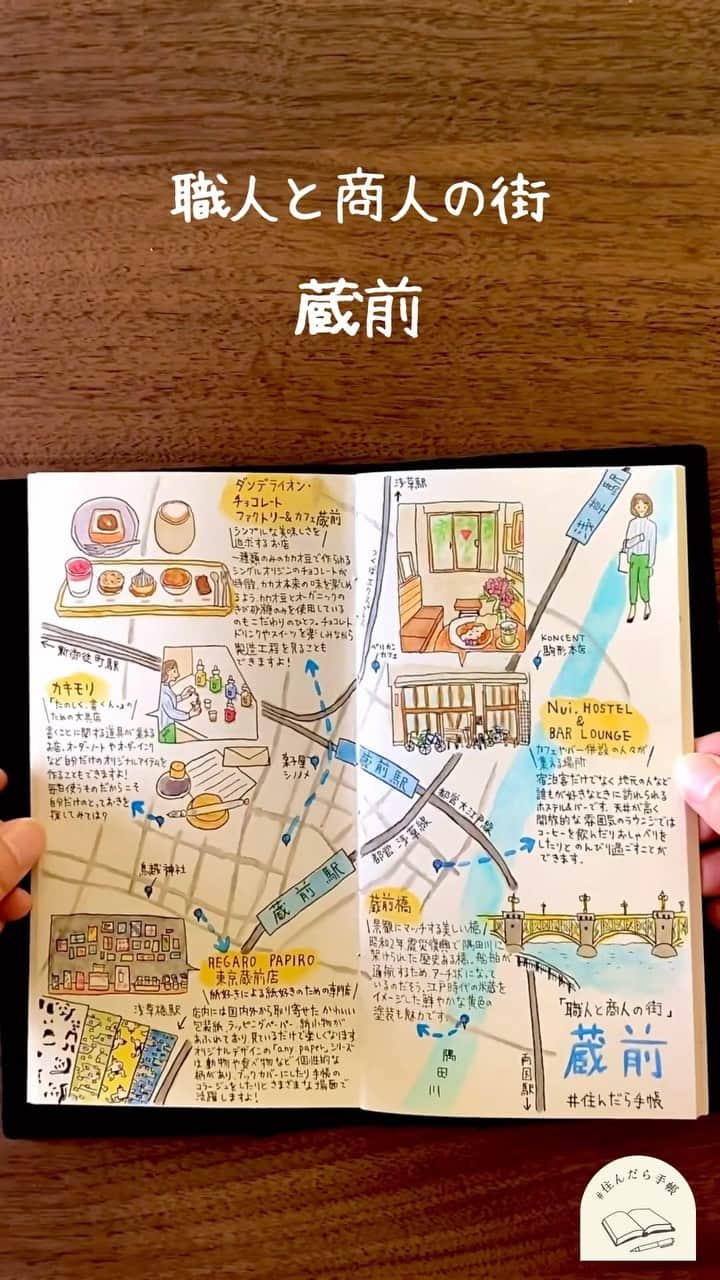 職人と商人の街
蔵前
ダンデライオン・
チョコレート
ファクトリー&カフェ蔵前
シンプルな美味しさを
追求するお店
一種類のみのカカオ豆で作られる
シングルオリジンのチョコレートが
特徴。カカオ本来の味を楽しめ
るよう、カカオ豆とオーガニックの
きび砂糖のみを使用している
のもこだわりのひとつ。チョコレート
ドリンクやスイーツを楽しみながら
製造工程を見ることも
できますよ!
新御徒町駅
カキモリ
「たのしく、書くん。」の
ための文具店
書くことに関する道具が集まる
お店。オーダーノートやオーダーインク
など自分だけのオリジナルアイテムを
作ることもできますよ!
毎日使うものだからこそ
自分だけのとっておきを
探してみては?
菓子屋
シノノメ
鳥越神社
蔵前駅
REGARO PAPIRO
東京蔵前店
紙好きによる紙好きのための専門店
店内には国内外から取り寄せたかわいい
包装紙、ラッピングペーパー、紙小物が
あふれており、見ているだけで楽しくなります
オリジナルデザインの「any paper」シリーズ
は動物や食べ物など個性的な
柄があり、ブックカバーにしたり手帳の
コラージュをしたりとさまざまな場面で
活躍しますよ!
浅草橋駅
浅草駅
つくばエクスプレス
ペリカン
カフェ
KONCENT
駒形本店
Nui. HOSTEL
&
BAR LOUNGE
カフェやバー併設の人々が
集える場所
宿泊客だけでなく地元の人など
誰もが好きなときに訪れられる
ホステル&バーです。天井が高く
開放的な雰囲気のラウンジでは
コーヒーを飲んだりおしゃべりを
したりとのんびり過ごすことが
できます。
蔵前駅
都営大江戸線
都営浅草線
蔵前橋
景観にマッチする美しい橋
昭和2年震災復興で隅田川に
架けられた歴史ある橋。船舶が
通航するためアーチ状になって
いるのだそう。江戸時代の米蔵を
イメージした鮮やかな黄色の
塗装も魅力です。
隅田川
両国駅
「職人と商人の街」
蔵前
#住んだら手帳
#住んだら手帳